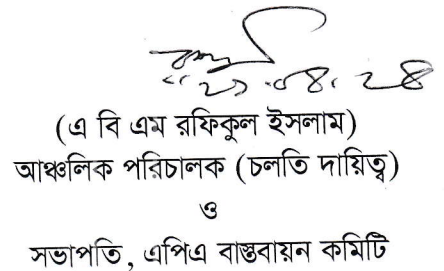 ২১.০৪.২৪
(এ বি এম রফিকুল ইসলাম)
আঞ্চলিক পরিচালক (চলতি দায়িত্ব)
ও
সভাপতি, এপিএ বাস্তবায়ন কমিটি